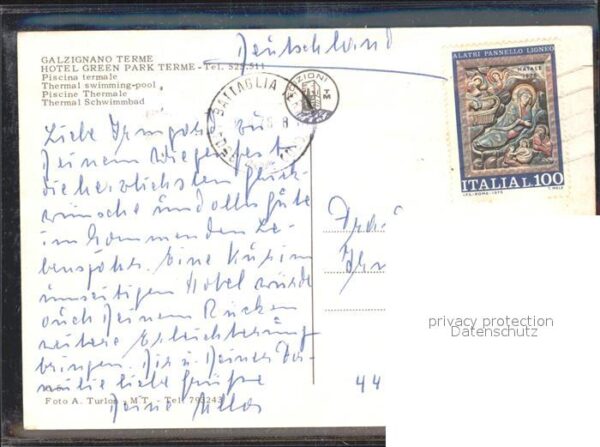 Deutschland
GALZIGNANO TERME
HOTEL GREEN PARK TERME - Tel. 525.511
Piscina termale
Thermal swimming-pool
Piscine Thermale
Thermal Schwimmbad
BATTAGLIA
ALATRI PANNELLO LIGNEO
NATALE
ITALIA L.100
I.P.S.-ROMA-1975
Liebe Irmgard zu
Deinem Wiegenfeste
die herzlichsten Glück-
wünsche und alles Gute
im kommenden Le-
bensjahr. Eine Kur im
hiesigen Hotel würde
auch Deinem Rücken
weitere Erleichterung
bringen. Dir u. Deiner Fa-
milie liebe Grüße
Deine
Foto A. Turlon - M.T. - Tel. 793243
44
privacy protection
Datenschutz